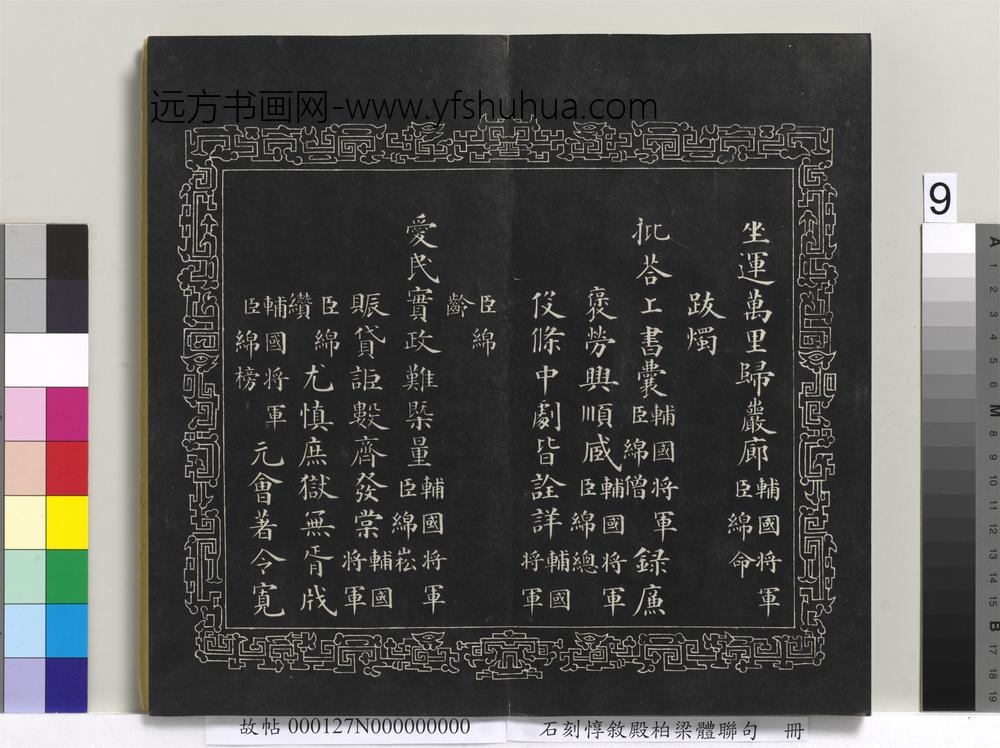 远方书画网-www.yfshuhua.com
坐運萬里歸巖廊輔國將軍臣綿命
跋燭
批荅上書囊輔國將軍臣綿僧錄廉
褒勞興順感輔國將軍臣綿總
伇條中劇皆詮詳輔國將軍
臣綿齡
愛民實政難槩量輔國將軍臣綿崧
賑貸詎數齊發棠輔國將軍
臣綿纘尤慎庶獄無胥戕
輔國將軍臣綿榜元會著令寬
故帖 000127N000000000
石刻惇敘殿柏梁體聯句 冊
9
A 1 2 3 4 5 6 M 8 9 10 11 12 13 14 15 B 17 18 19